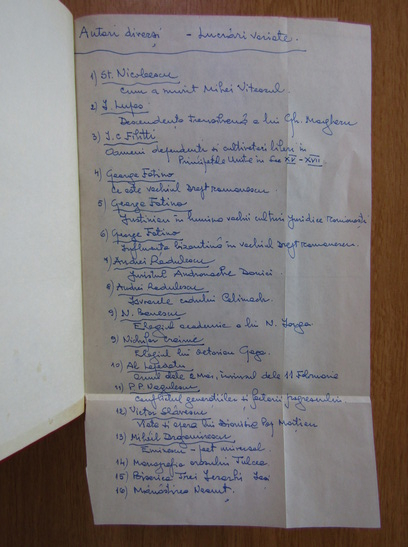 Autori diverși - Lucrări variate.
1) St. Nicolaescu
Cum a murit Mihai Viteazul
2) I. Lupaș
Descendența transilvană a lui Gh. Magheru
3) I. C. Filitti
Oameni dependenți și cultivatori liberi în
Principatele Unite în sec XV - XVII
4) George Fotino
Ce este vechiul Drept romanesc.
5) George Fotino
Justinian în lumina vechii culturi juridice românești
6) George Fotino
Influența bizantină în vechiul Drept romanesc.
7) Andrei Rădulescu
Juristul Andronache Donici
8) Andrei Radulescu
Isvoarele codului Calimach
9) N. Banescu
Elogiul academic a lui N. Iorga.
9) Nichifor Crainic
Elogiul lui Octavian Goga.
10) Al Lapedatu
Omul dela 2 Mai, învinsul dela 11 Februarie
11) P. P. Negulescu
Conflictul generațiilor și factorii progresului
12) Victor Slăvescu
Viata și opera lui Dionisie Pop Marțian
13) Mihail Dragomirescu
Eminescu - poet universal
14) Monografia orasului Tulcea
15) Biserica Trei Ierarhi Iasi
16) Mânăstirea Neamt.